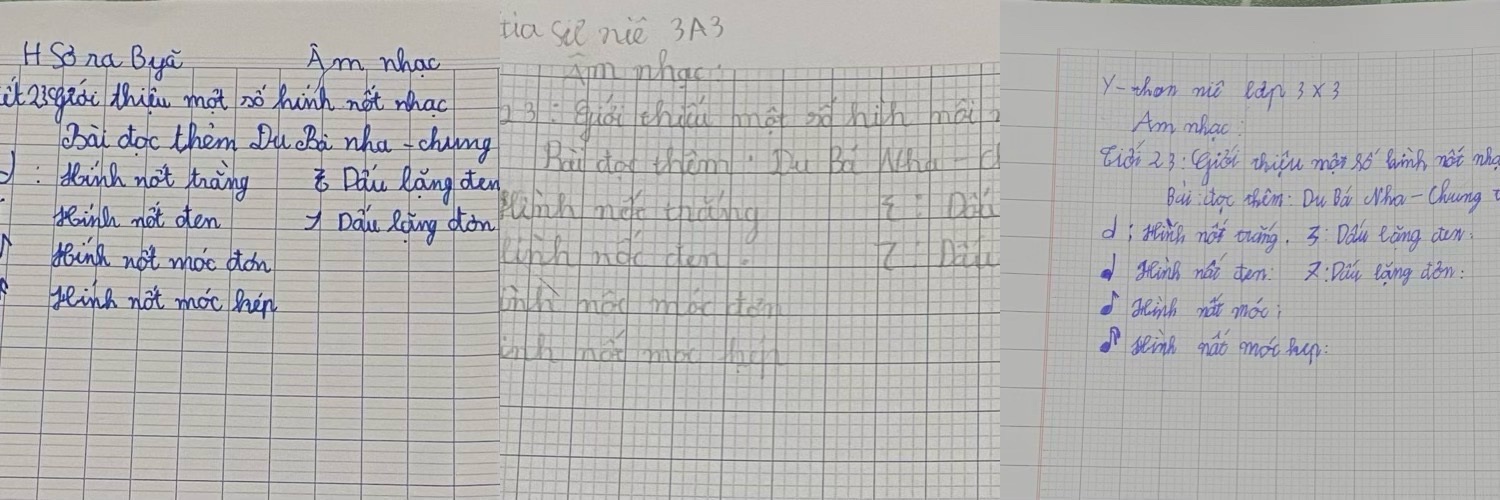 H Sơ ra Byă
Âm nhạc
ết 23 giới thiệu một số hính nốt nhạc
Bài đọc thêm Du Bà nha - chung
d : Hính nốt trằng ჳ Dấu lặng đen
Hính nốt đen 7 Dấu lặng đơn
♪ Hính nốt móc đơn
Hính nốt móc hép
tia sil niê 3A3
Âm nhạc:
23: Giới thiếu một số hih nôi
Bài đọc thêm: Du Bá Nha - C
Hình nốc thắng ჳ : Dấu
Hình nốc đen. 7 Dấu
ình nốc móc đơn
inh nốt moc hep
Y - thon niê lớp 3 x 3
Am nhạc:
Tiết 23: Giới thiệu một số hình nốt nhạ
Bài đọc thêm: Du Bá Nha - Chung t
d : Hình nốt trắng. ჳ: Dấu lặng đen:
♩ Hình nất đen: 7: Dấu lặng đơn:
♪ Hình nốt móc;
Hình nất móc hep: